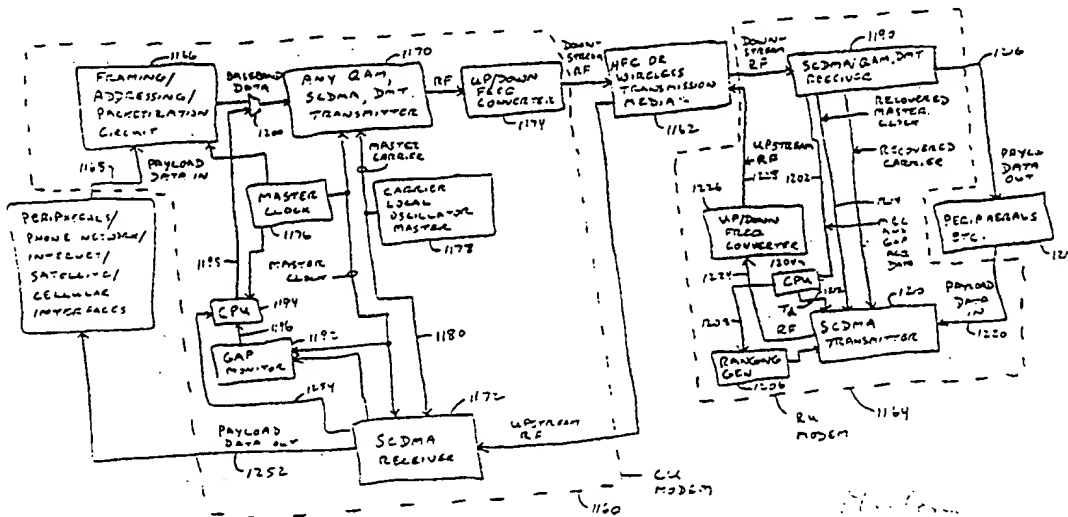 1166
FRAMING/
ADDRESSING/
PACKETIZATION
CIRCUIT
BASEBAND
DATA
1200
1170
ANY QAM,
SCDMA, DMT.
TRANSMITTER
RF
UP/DOWN
FREQ
CONVERTER
1174
DOWN-
STREAM
RF
HFC OR
WIRELESS
TRANSMISSION
MEDIA
1162
DOWN-
STREAM
RF
1190
SCDMA/QAM, DMT
RECEIVER
1216
RECOVERED
MASTER
CLOCK
RECOVERED
CARRIER
PAYLOAD
DATA IN
PERIPHERALS/
PHONE NETWORK/
INTERNET/
SATELLITE/
CELLULAR
INTERFACES
MASTER
CLOCK
1176
MASTER
CARRIER
CARRIER
LOCAL
OSCILLATOR
MASTER
1178
MASTER
CLOCK
1195
CPU
1194
1196
1192
GAP
MONITOR
1254
1180
1172
SCDMA
RECEIVER
UPSTREAM
RF
PAYLOAD
DATA OUT
1252
CU
MODEM
1160
UPSTREAM
RF
1228
1202
1226
UP/DOWN
FREQ
CONVERTER
1224
CPU
1212
Td
RF
RANGING
GEN
1206
AND
GAP
ACQ
DATA
1210
SCDMA
TRANSMITTER
PAYLOAD
DATA OUT
PERIPHERALS
ETC.
PAYLOAD
DATA IN
1220
RU
MODEM
1164